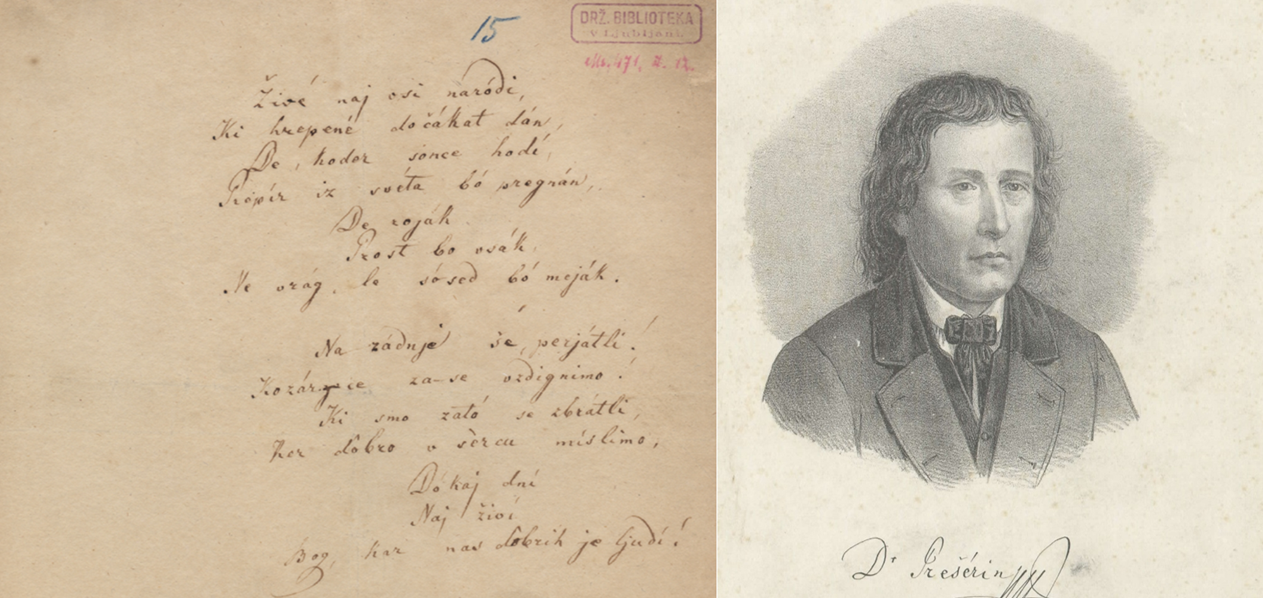 15
DRŽ. BIBLIOTEKA
v Ljubljani.
Živé naj vsi naródi,
Ki hrepené dočákat dán,
De, koder sonce hodi,
Prepír iz svéta bó pregnán,
De roják
Prost bo vsák,
Ne vrág, le sósed bó meják.
Na zadnje še, perjátli!
Kozárce za-se vzdignimo!
Ki smo zató se zbrátli,
Ker dobro v sèrcu míslimo,
Dókaj dni
Naj živí
Bog, kar nas dobrih je ljudí!
Dr Prešérin